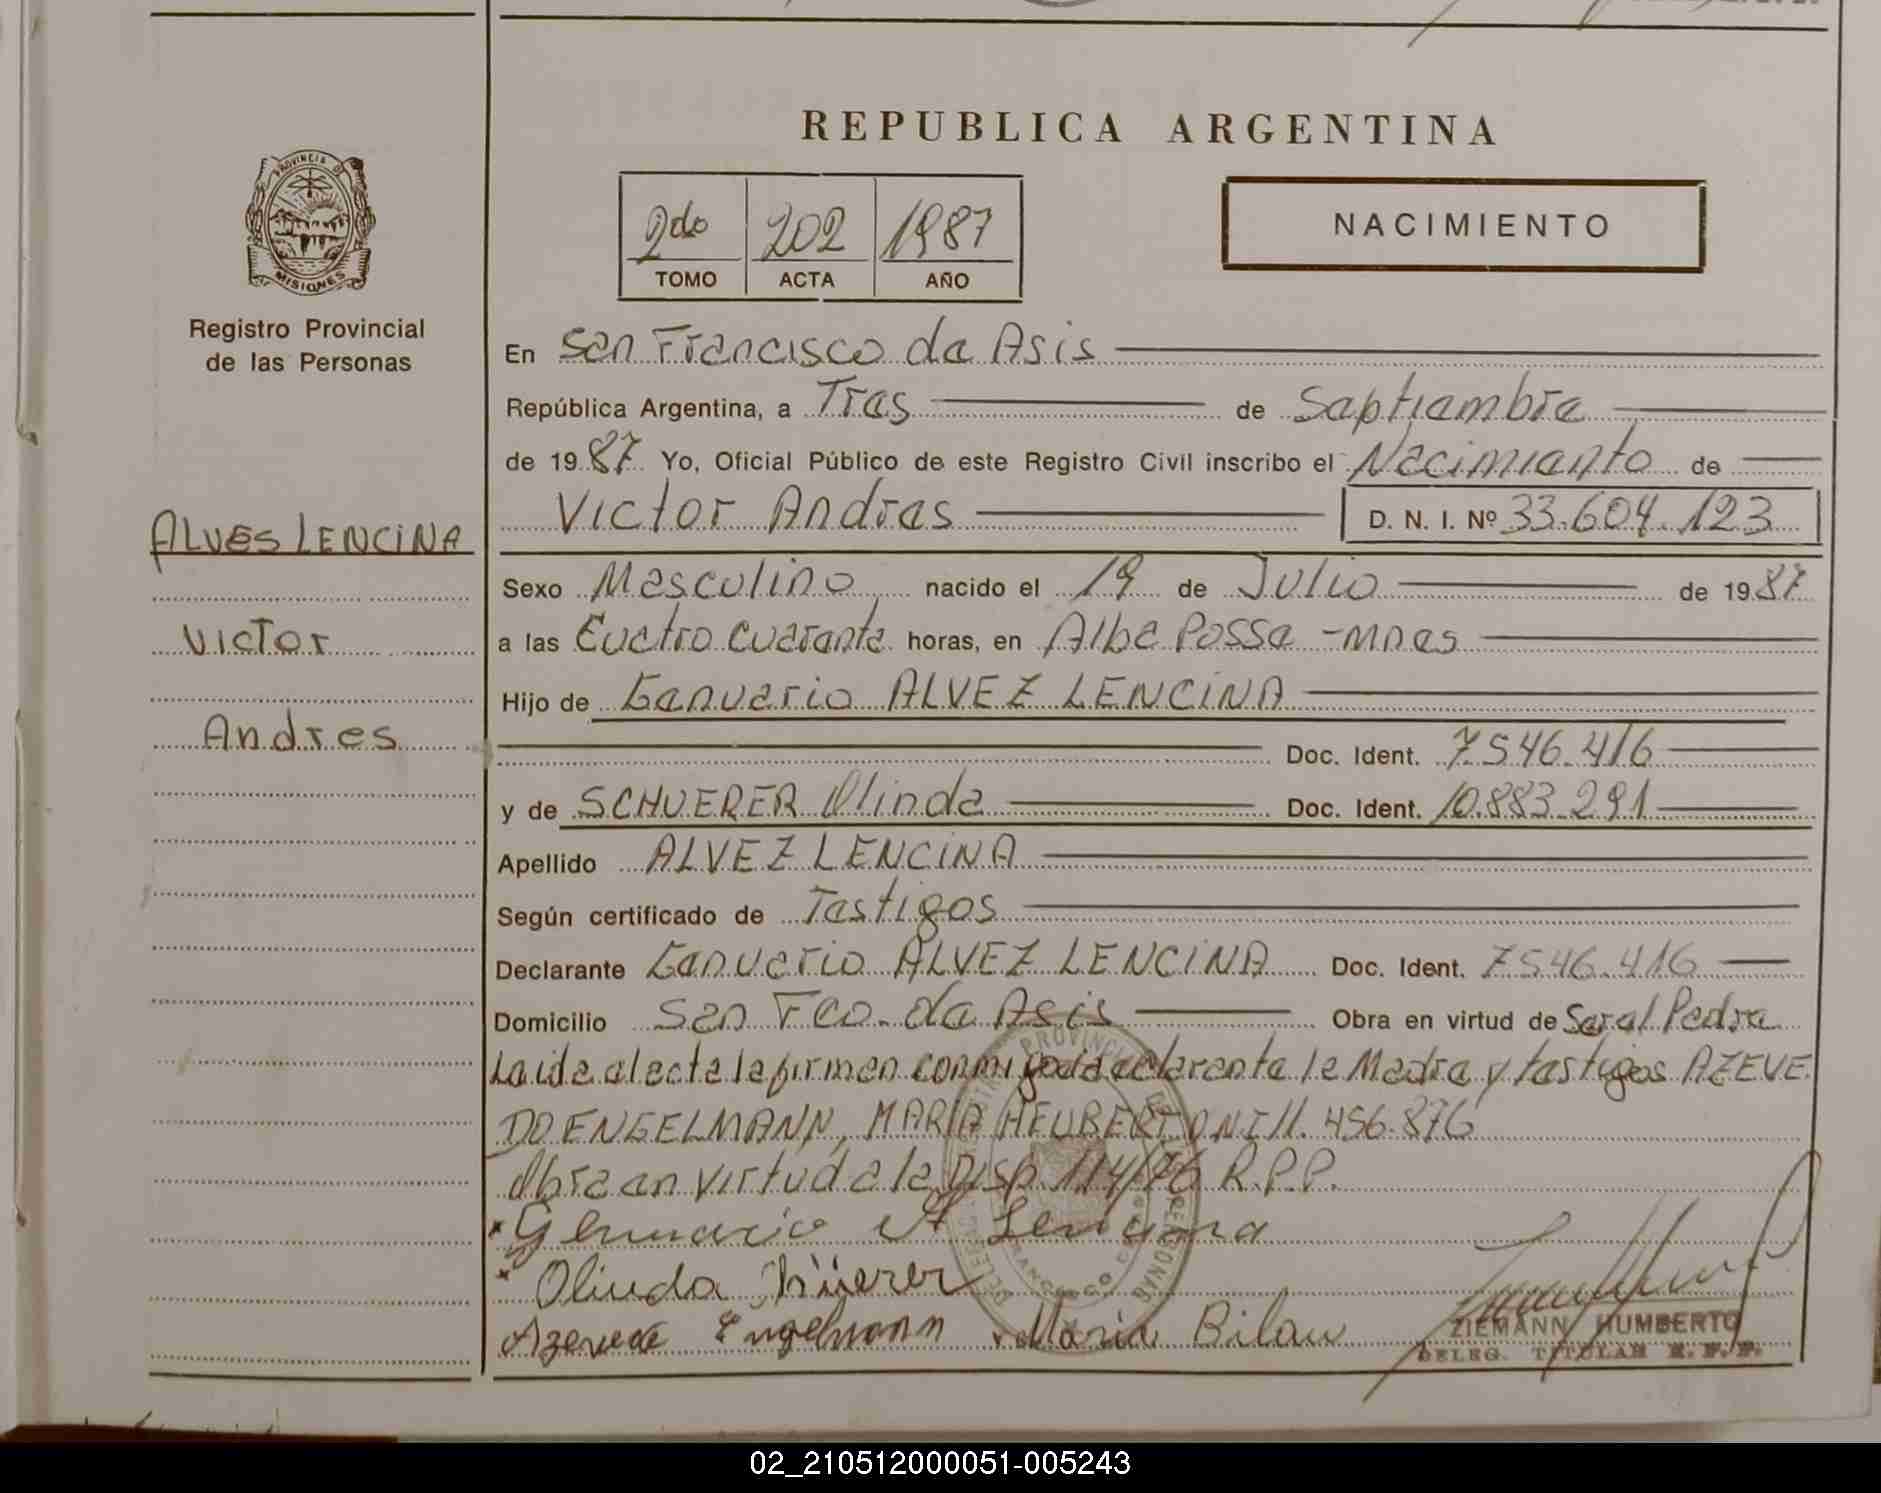 REPUBLICA ARGENTINA
PROVINCIA DE
MISIONES
Registro Provincial
de las Personas
2do 202 1987
TOMO ACTA AÑO
NACIMIENTO
En San Francisco de Asis
República Argentina, a Tres de Septiembre
de 1987 Yo, Oficial Público de este Registro Civil inscribo el Nacimiento de
Victor Andres D. N. I. Nº 33.604.123
ALVES LENCINA
Victor
Andres
Sexo Masculino nacido el 19 de Julio de 1987
a las Cuatro cuarenta horas, en Alba Posse - Mnes
Hijo de Genuario ALVEZ LENCINA
Doc. Ident. 7.546.416
y de SCHUERER Olinda Doc. Ident. 10.883.291
Apellido ALVEZ LENCINA
Según certificado de Testigos
Declarante Genuario ALVEZ LENCINA Doc. Ident. 7.546.416
Domicilio San Fco. de Asis Obra en virtud de Ser el Padre
Leida el acta la firman conmigo el declarante la Madre y testigos AZEVE
DO ENGELMANN, MARIA HEUBERT DNI 11.456.876
Obra en virtud a la Disp. 114/76 R.P.P.
Genuario A Lencina
Olinda
Azevedo Engelmann Maria Bilau
ZIEMANN HUMBERTO
DELEG. TITULAR R. P. P.
02_210512000051-005243